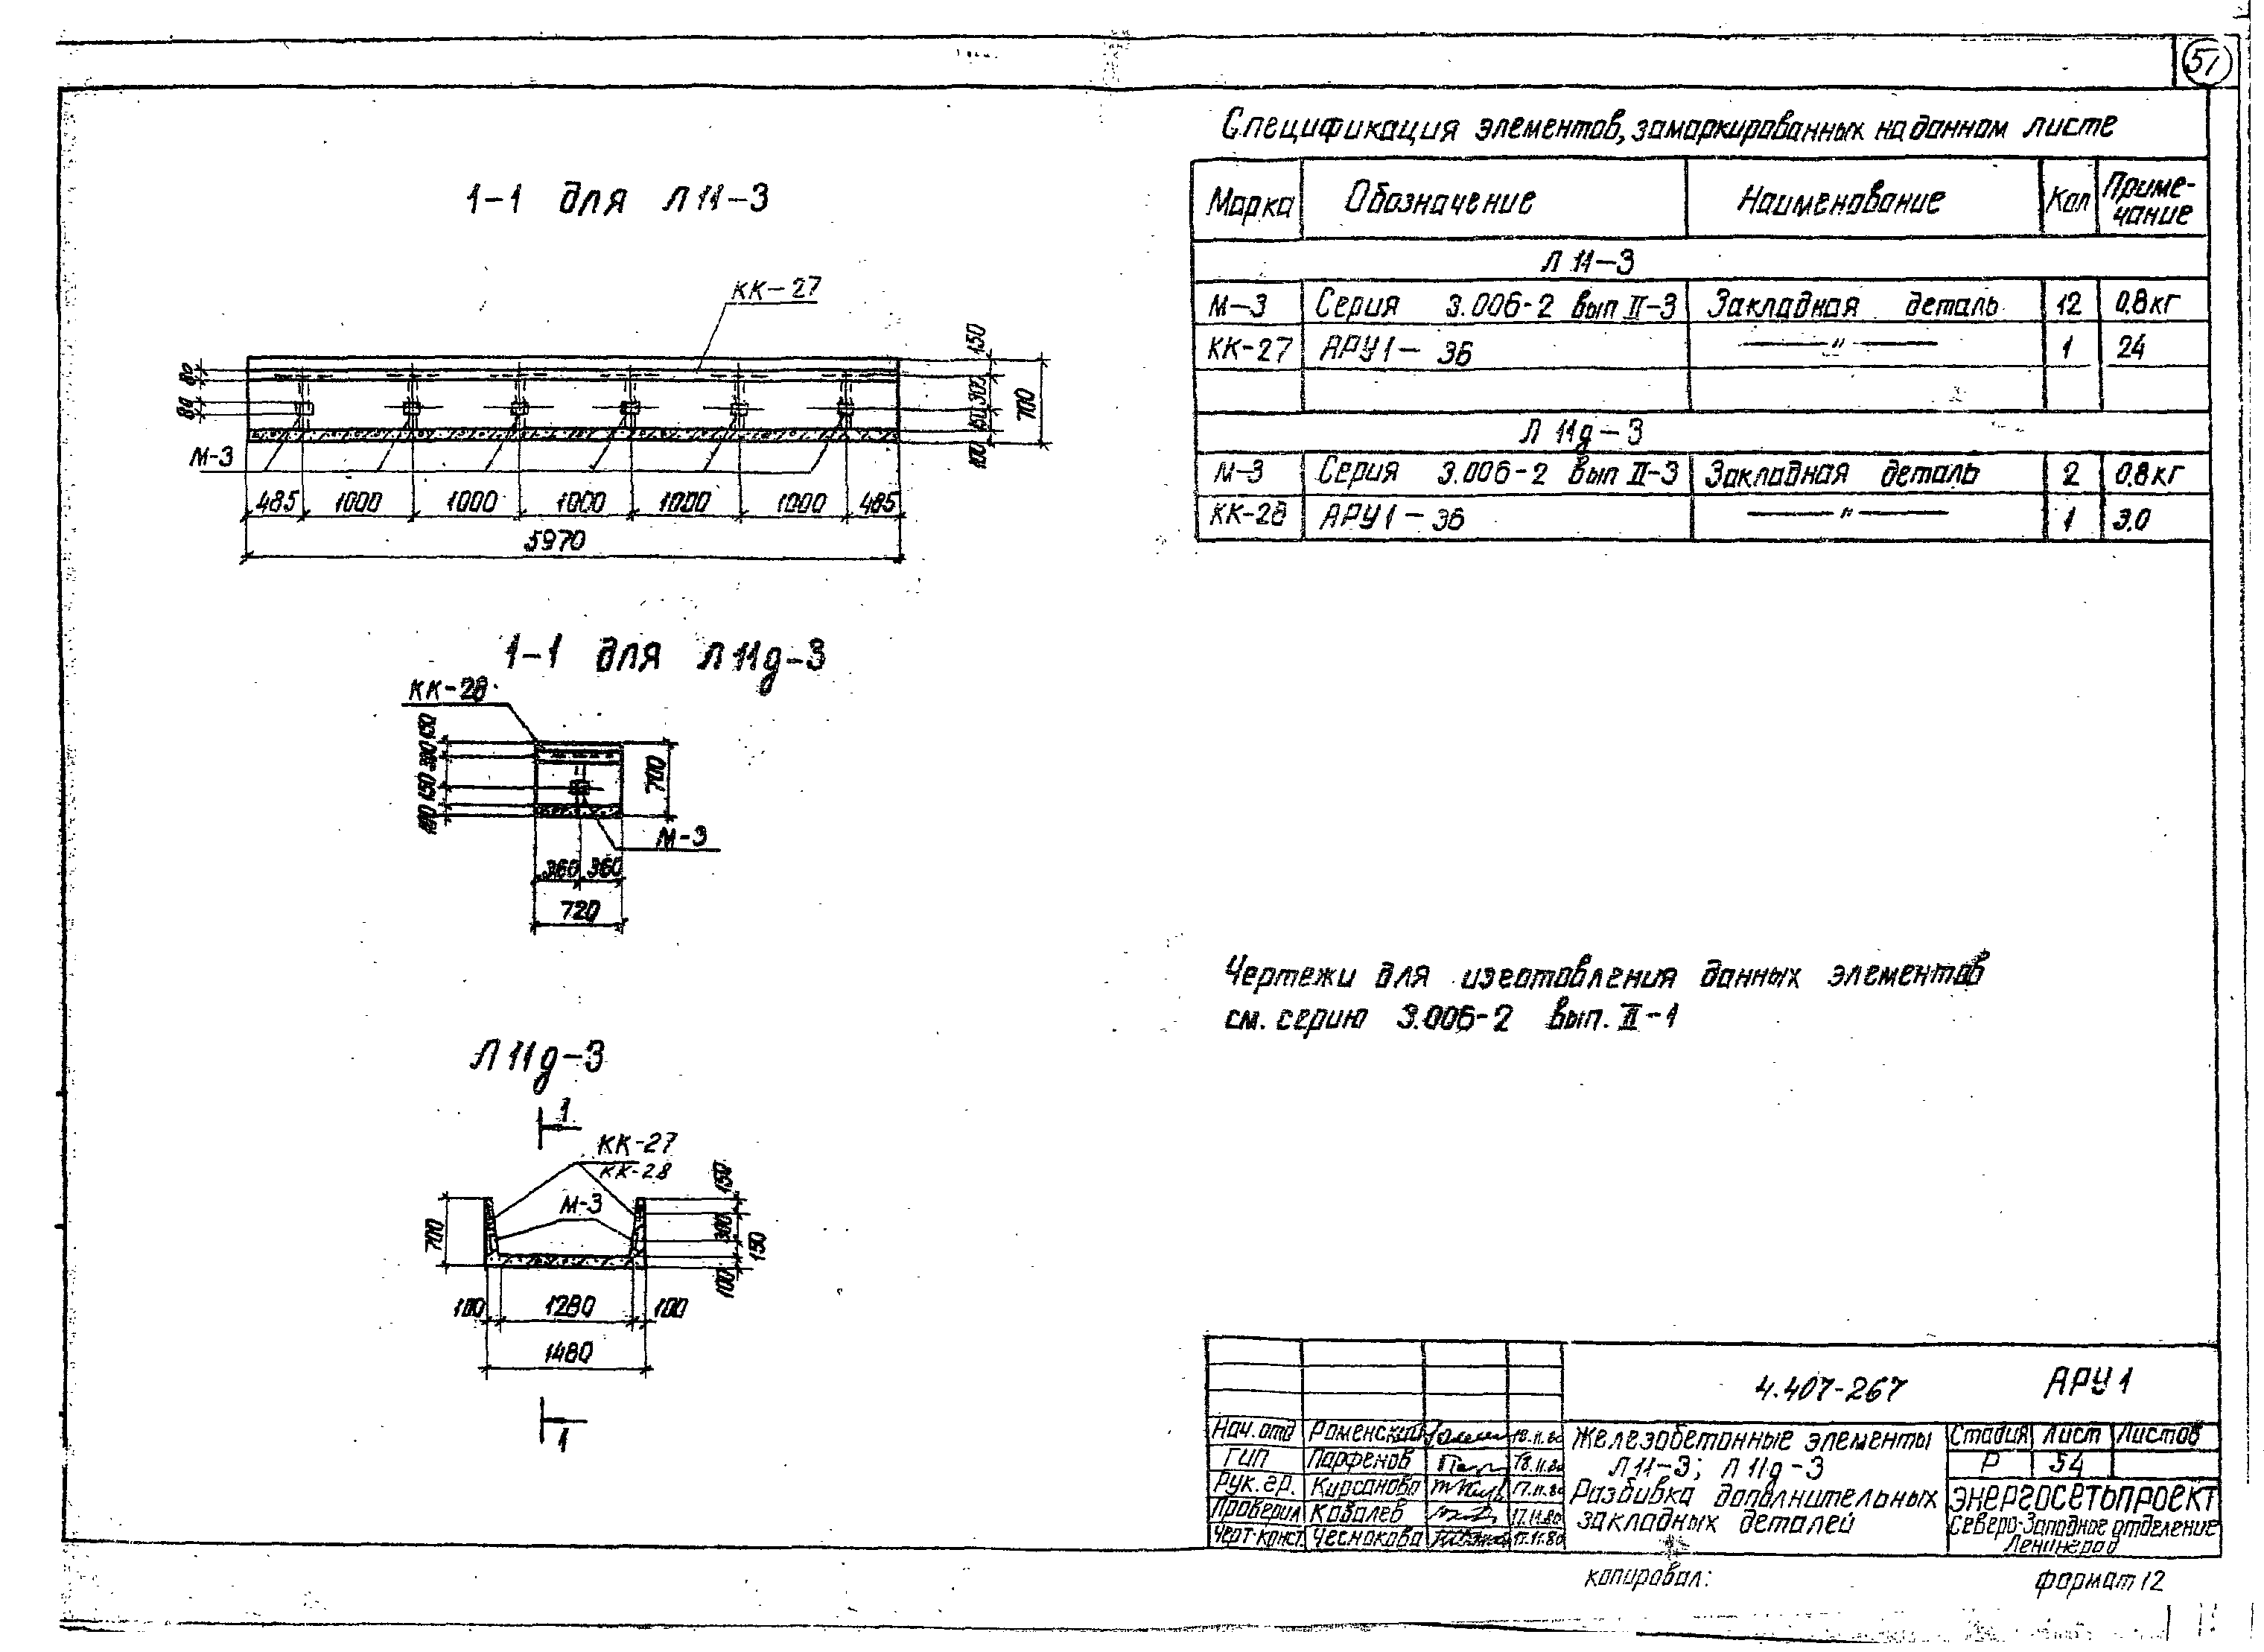 51
Спецификация элементов, замаркированных на данном листе
Марка Обозначение Наименование Кол Приме-чание
Л 11-3
М-3 Серия 3.006-2 вып II-3 Закладная деталь 12 0.8кг
КК-27 АРУ1-36 —"— 1 24
Л 11д-3
М-3 Серия 3.006-2 вып II-3 Закладная деталь 2 0.8кг
КК-28 АРУ1-36 —"— 1 3.0
1-1 для Л 11-3
КК-27
80
80
150
300
150
100
700
М-3
485 1000 1000 1000 1000 1000 485
5970
1-1 для Л 11д-3
КК-28
150
300
150
100
700
М-3
360 360
720
Чертежи для изготовления данных элементов
см. серию 3.006-2 вып. II-1
Л 11д-3
1
КК-27
КК-28
М-3
700
150
300
150
100
100 1280 100
1480
1
4.407-267 АРУ1
Нач.отд Роменский 18.11.80
ГИП Парфенов 18.11.80
Рук.гр. Кирсанова 17.11.80
Проверил Ковалев 17.11.80
Черт-конст. Чеснокова 17.11.80
Железобетонные элементы
Л 11-3; Л 11д-3
Разбивка дополнительных
закладных деталей
Стадия Лист Листов
Р 54
ЭНЕРГОСЕТЬПРОЕКТ
Северо-Западное отделение
Ленинград
копировал:
формат 12